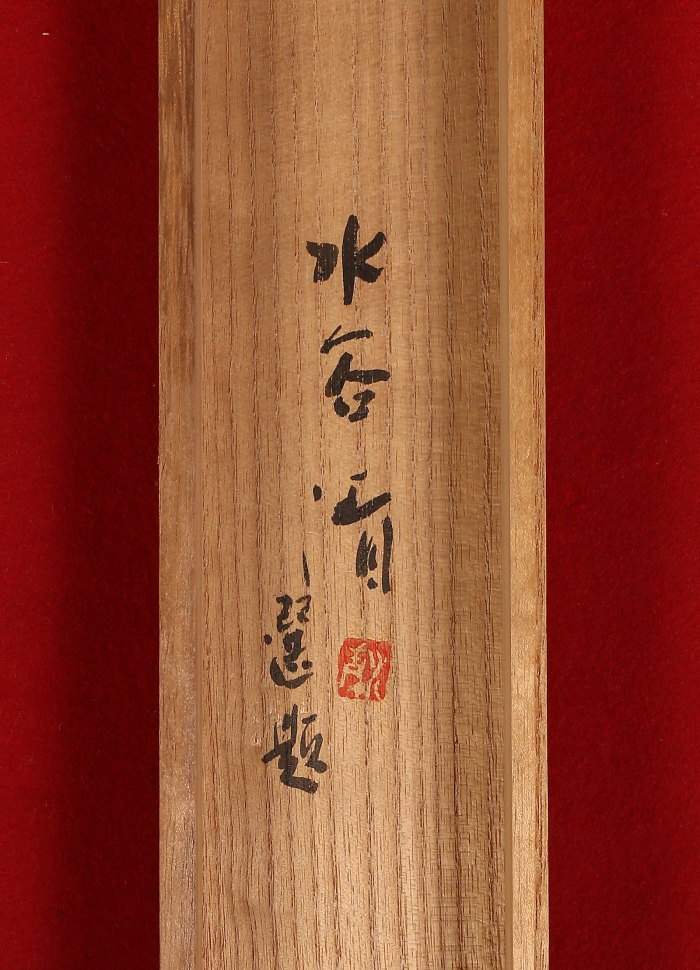 水谷清
選題